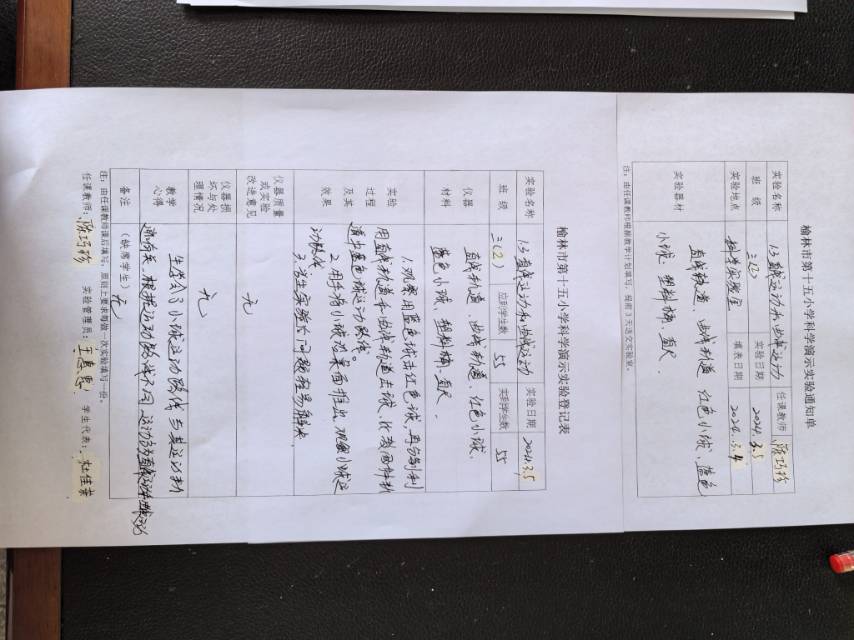 榆林市第十五小学科学演示实验通知单
实验名称 1.3直线运动和曲线运动 任课教师 陈巧珍
班 级 三(2) 实验日期 2024.3.5
实验地点 科学实验室 填表日期 2024.3.4
实验器材 直线轨道、曲线轨道 红色小球、蓝色
小球、塑料桶、直尺
注:由任课教师根据教学计划填写,提前3天送交实验室。
榆林市第十五小学科学演示实验登记表
实验名称 1.3直线运动和曲线运动 实验日期 2024.3.5
班 级 三(2) 应到学生数 55 实到学生数 55
仪器材料 直线轨道、曲线轨道、红色小球、
蓝色小球、塑料桶、直尺。
实验过程及其效果
1.观察用蓝色球击红色球,再分别利
用直线轨道和曲线轨道击球,比较两种轨
道中蓝色球运动路线。
2.用手将小球从桌面推出,观察小球运
动路线。
3.学生实验
仪器质量或实验改进意见 无
仪器损坏与处理情况 无
教学心得 学生学会了小球运动路线与其运动轨
根据运动路线不同,运动分为直线运动和曲线运动
备注 (缺席学生) 无
注:由任课教师课后填写,原则上要求每做一次实验填写一份。
任课教师:陈巧珍 实验管理员:王惠惠 学生代表:杜佳荣